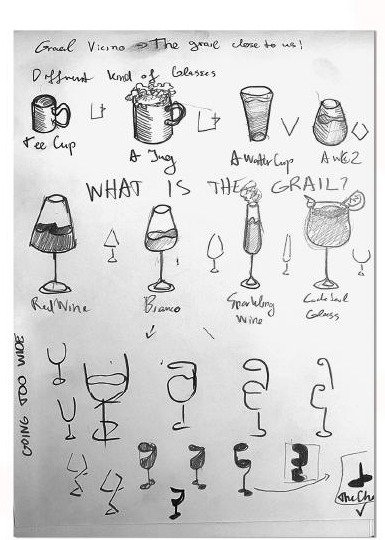 Graal Vicino → The grail close to us!
Different kind of Glasses
Tee Cup
A Jug
A Water Cup
WHAT IS THE GRAIL?
Red Wine
Bianco
Sparkling Wine
Cocktail Glass
GOING TOO WIDE
The Ch